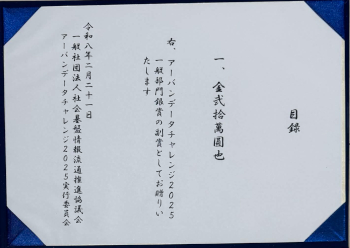 目録
一、金弐拾萬圓也
右、アーバンデータチャレンジ2025
一般部門銀賞の副賞としてお贈りい
たします
令和八年二月二十一日
一般社団法人社会基盤情報流通推進協議会
アーバンデータチャレンジ2025実行委員会